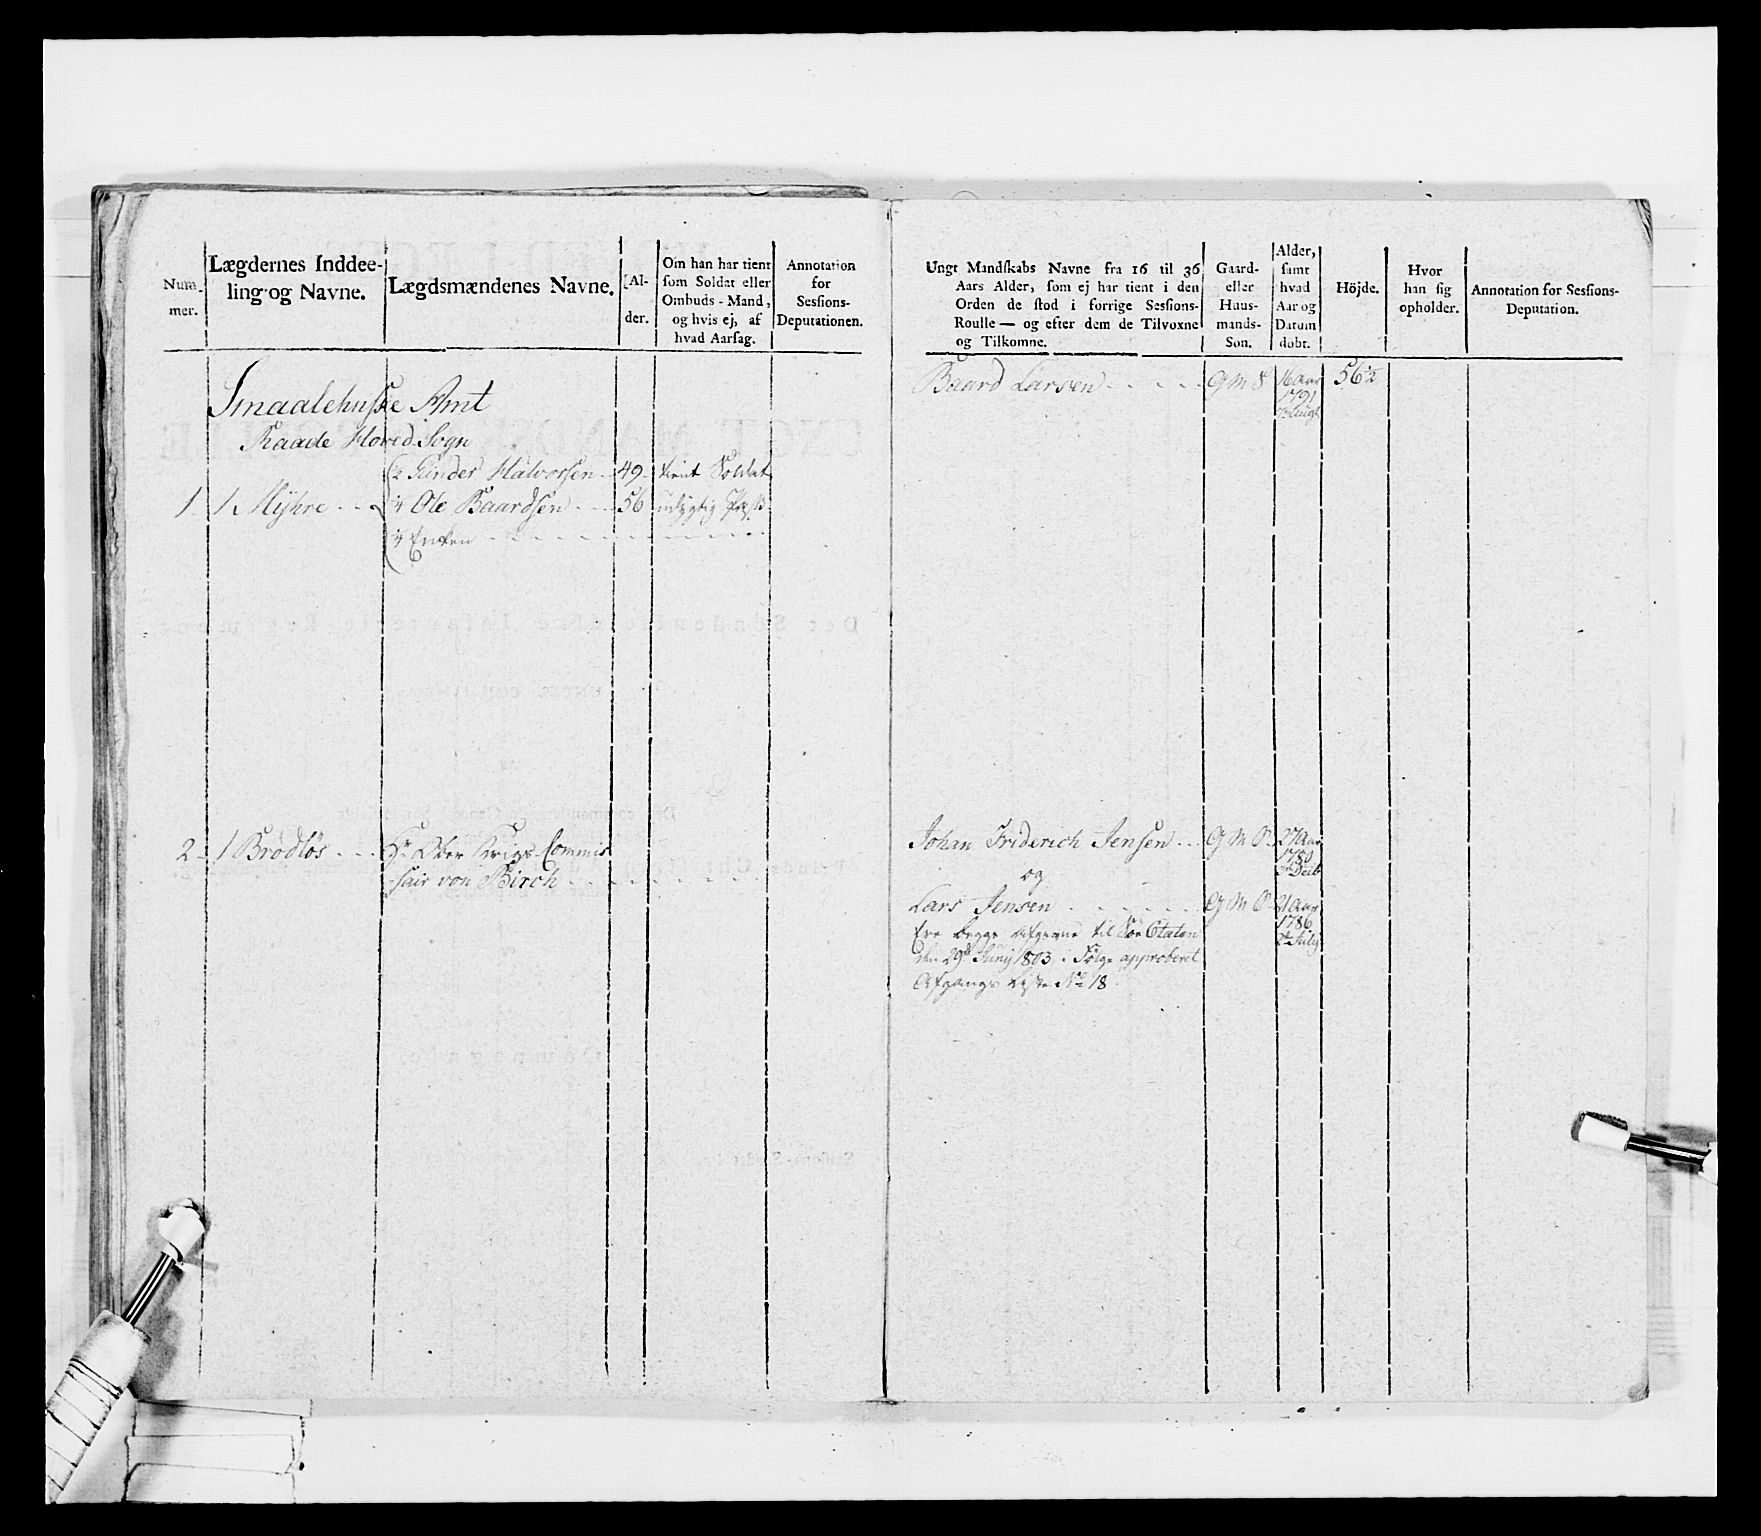 Num-
mer.
Lægdernes Inddee-
ling og Navne.
Lægdsmændenes Navne.
Al-
der.
Om han har tient
som Soldat eller
Ombuds-Mand,
og hvis ej, af
hvad Aarsag.
Annotation
for
Sessions-
Deputationen.
Smaalehnske Amt
Raade Hoved Sogn
1 1 Myhre
½ Gunder Halvorsen 49 tient Soldat
¼ Ole Baardsen 56 udygtig
¼ Enken
2 1 Brødløs Hr Ober Krigs Commis
sair von Birch
Ungt Mandskabs Navne fra 16 til 36
Aars Alder, som ej har tient i den
Orden de stod i forrige Sessions-
Roulle — og efter dem de Tilvoxne
og Tilkomne.
Gaard-
eller
Huus-
mands-
Son.
Alder,
samt
hvad
Aar og
Datum
dobt.
Höjde.
Hvor
han sig
opholder.
Annotation for Sessions-
Deputation.
Baard Larsen G M S 16 Aar 56½
1791
Johan Friderich Jensen G M S 27 Aar
1780
og
Lars Jensen G M S 21 Aar
1786
2de July
Ere begge afgevne til Söe Etaten
den 29de Junij 1803 i Følge approberet
Afgangs Liste No 18